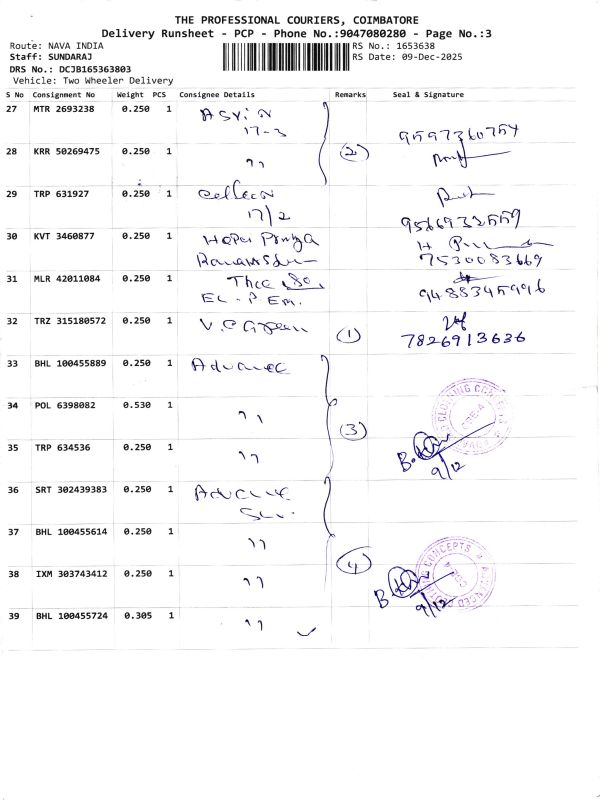 THE PROFESSIONAL COURIERS, COIMBATORE
Delivery Runsheet - PCP - Phone No.:9047080280 - Page No.:3
Route: NAVA INDIA RS No.: 1653638
Staff: SUNDARAJ RS Date: 09-Dec-2025
DRS No.: DCJB165363803
Vehicle: Two Wheeler Delivery
S No Consignment No Weight PCS Consignee Details Remarks Seal & Signature
27 MTR 2693238 0.250 1 Asvin
17-3 9597360754
28 KRR 50269475 0.250 1 " (2)
29 TRP 631927 0.250 1
17/2 9566932559
30 KVT 3460877 0.250 1
7530083669
31 MLR 42011084 0.250 1
9488345996
32 TRZ 315180572 0.250 1 V.C (1)
7826913636
33 BHL 100455889 0.250 1 Advance
34 POL 6398082 0.530 1 "
(3)
35 TRP 634536 0.250 1 "
9/12
36 SRT 302439383 0.250 1 Advance
37 BHL 100455614 0.250 1 "
(4)
38 IXM 303743412 0.250 1 "
9/12
39 BHL 100455724 0.305 1 "